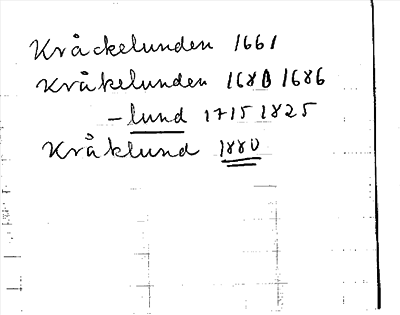 Kråckelunden 1661
Kråkelunden 1680 1686
- lund 1715 1825
Kråklund 1880